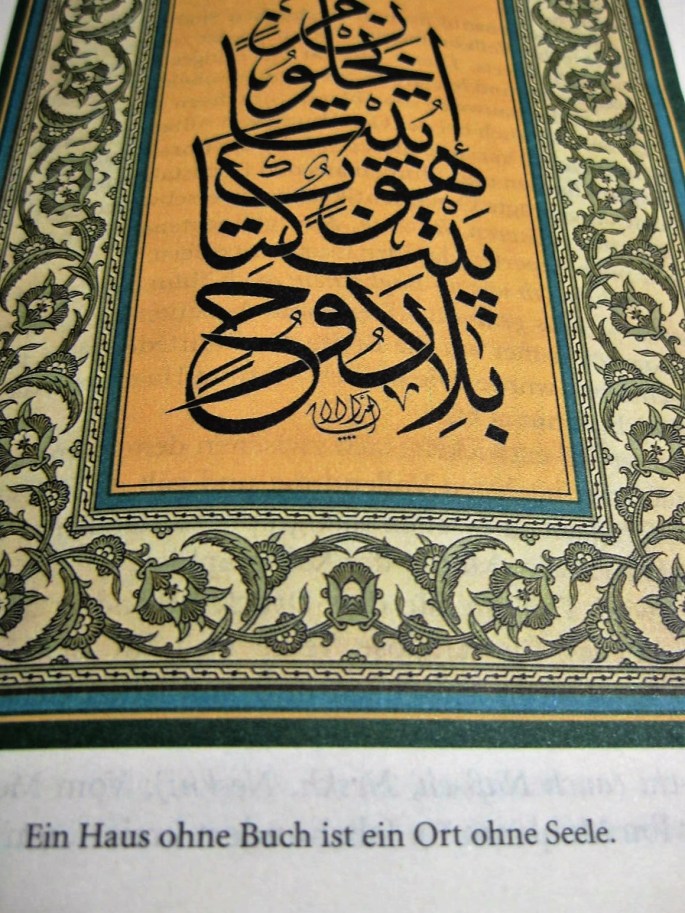 بيتا يخلو من
كتاب هو بيت
بلا روح
Ein Haus ohne Buch ist ein Ort ohne Seele.